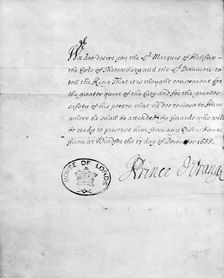 Wee doe desire you the Ld Marquis of Halifax
the Erle of Shrewsbury and the Ld Delamere to
tell the King That it is thought convenient for
the greater quiet of the City and for the greater
safety of his person that he doe remove to Ham
where he shall be attended by guards who will
be ready to preserve him from any disturbance
Given at Windsor the 17 day of December 1688.
Prince d'Orange
HOUSE OF LORDS